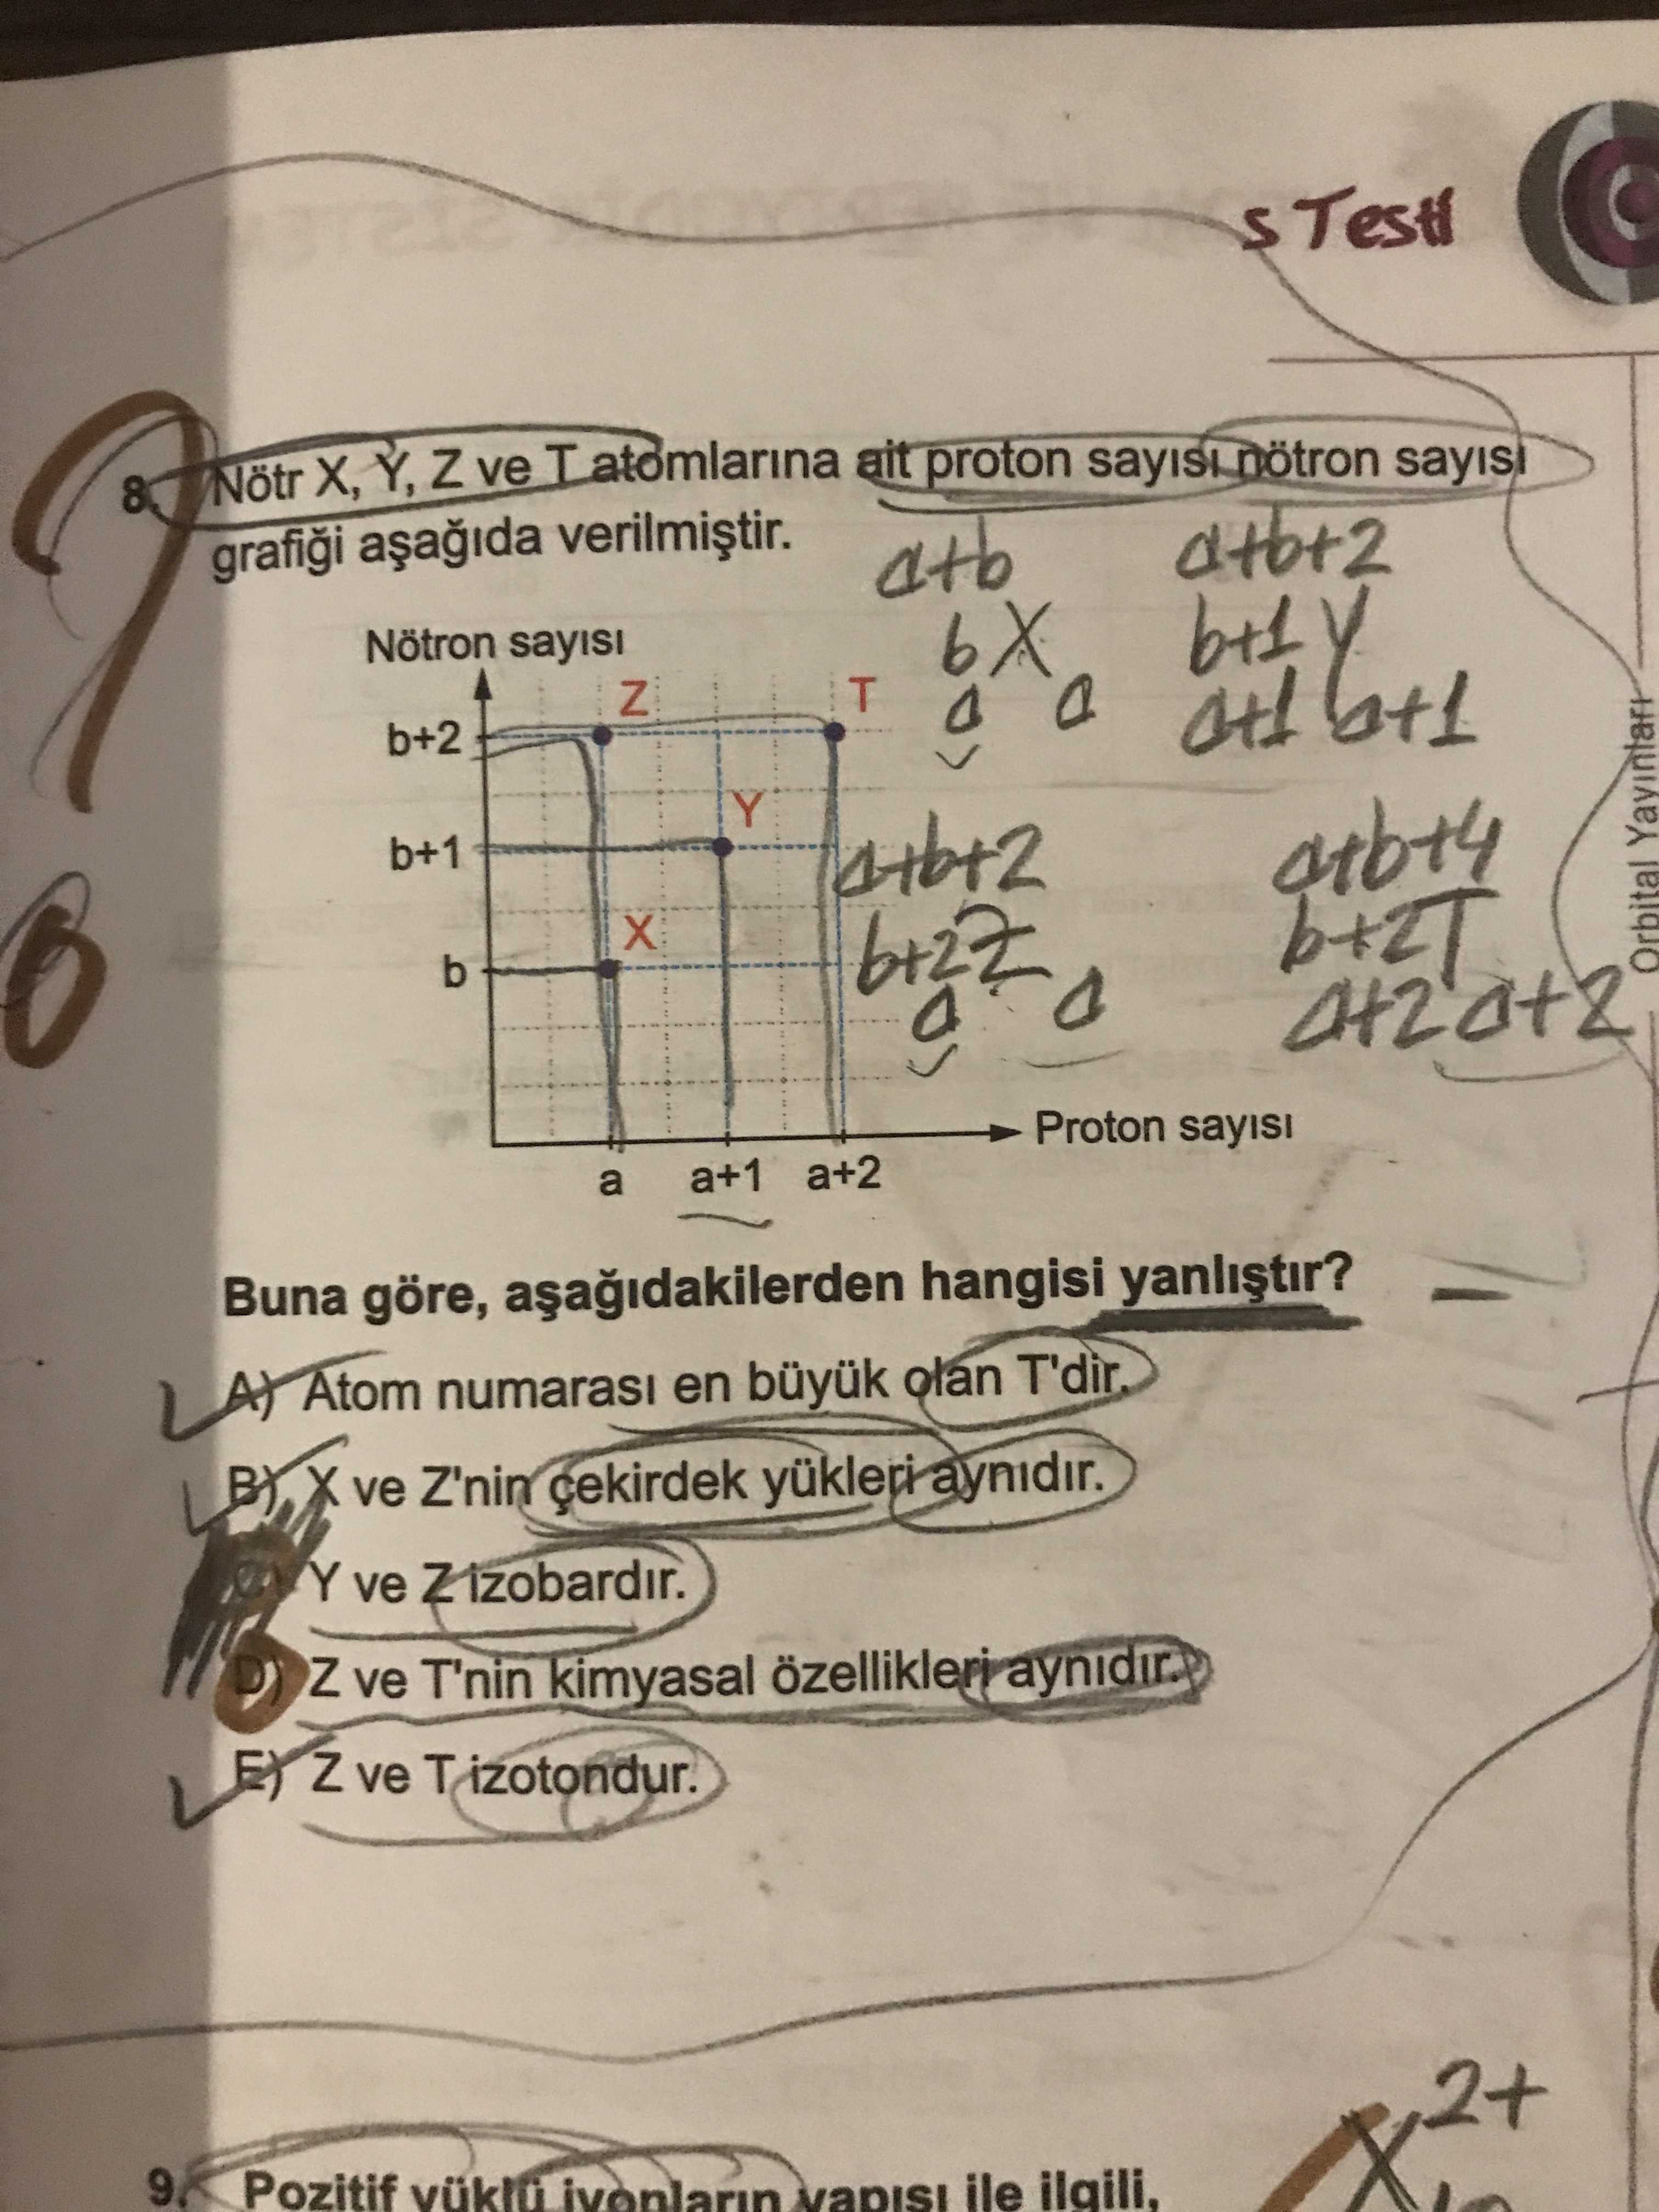 s Testi
8. Nötr X, Y, Z ve T atomlarına ait proton sayısı nötron sayısı
grafiği aşağıda verilmiştir.
a+b
a+b+2
b X
b+1 Y
a a
a+1 a+1
Nötron sayısı
Z
T
b+2
Y
b+1
X
b
a+b+2
a+b+4
b+2 Z
b+2 T
a a
a+2 a+2
Proton sayısı
a a+1 a+2
Orbital Yayınları
Buna göre, aşağıdakilerden hangisi yanlıştır?
A) Atom numarası en büyük olan T'dir.
B) X ve Z'nin çekirdek yükleri aynıdır.
C) Y ve Z izobardır.
D) Z ve T'nin kimyasal özellikleri aynıdır.
E) Z ve T izotondur.
X 2+
9. Pozitif yüklü iyonların yapısı ile ilgili,